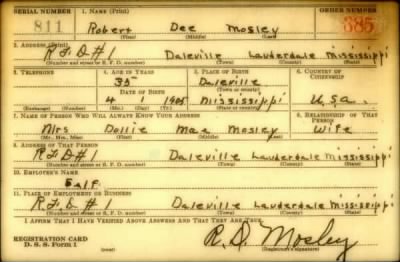 SERIAL NUMBER 1. NAME (Print) ORDER NUMBER
811 Robert Dee Mosley 385
(First) (Middle) (Last)
2. ADDRESS (Print)
R.F.D#1 Daleville Lauderdale Mississippi
(Number and street or R. F. D. number) (Town) (County) (State)
3. TELEPHONE 4. AGE IN YEARS 5. PLACE OF BIRTH 6. COUNTRY OF CITIZENSHIP
35 Daleville
DATE OF BIRTH (Town or county)
4 1 1905 Mississippi U.S.A.
(Exchange) (Number) (Mo.) (Day) (Yr.) (State or country)
7. NAME OF PERSON WHO WILL ALWAYS KNOW YOUR ADDRESS 8. RELATIONSHIP OF THAT PERSON
Mrs Dollie Mae Mosley Wife
(Mr., Mrs., Miss) (First) (Middle) (Last)
9. ADDRESS OF THAT PERSON
R.F.D#1 Daleville Lauderdale Mississippi
(Number and street or R. F. D. number) (Town) (County) (State)
10. EMPLOYER'S NAME
Self
11. PLACE OF EMPLOYMENT OR BUSINESS
R.F.D. #1 Daleville Lauderdale Mississippi
(Number and street or R. F. D. number) (Town) (County) (State)
I AFFIRM THAT I HAVE VERIFIED ABOVE ANSWERS AND THAT THEY ARE TRUE.
REGISTRATION CARD
D. S. S. Form 1 R. D. Mosley
(Registrant's signature)